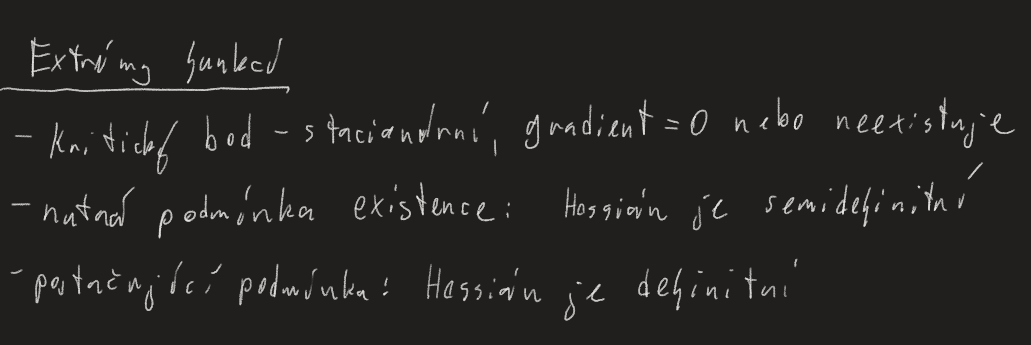 Extrémy funkcí
- kritický bod - stacionární, gradient = 0 nebo neexistuje
- nutná podmínka existence: Hessián je semidefinitní
- postačující podmínka: Hessián je definitní